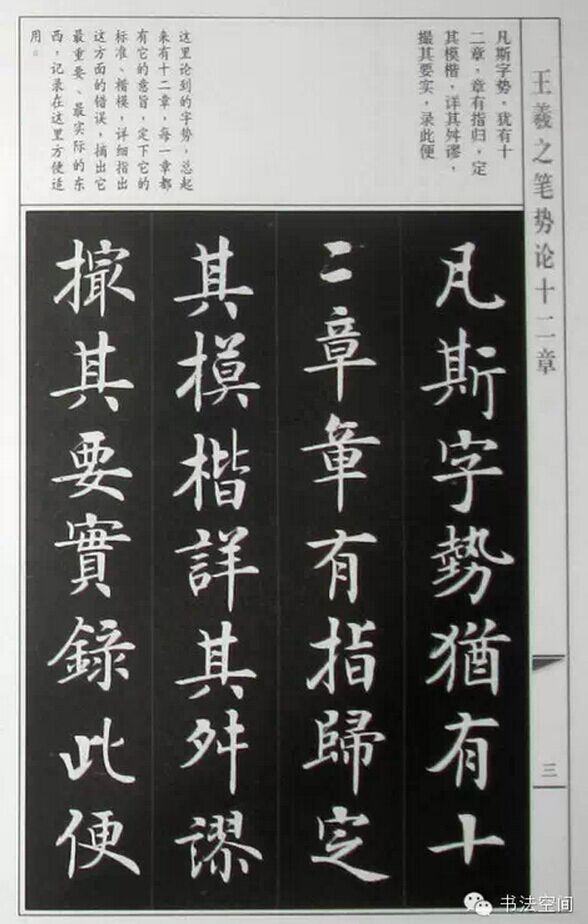 王羲之笔势论十二章
三
凡斯字势，犹有十
二章，章有指归，定
其模楷，详其舛谬，
撮其要实，录此便
这里论到的字势，总起
来有十二章，每一章都
有它的意旨，定下它的
标准、楷模，详细指出
这方面的错误，摘出它
最重要、最实际的东
西，记录在这里方便适
用。
凡斯字勢猶有十
二章章有指歸定
其模楷詳其舛謬
撮其要實錄此便
书法空间